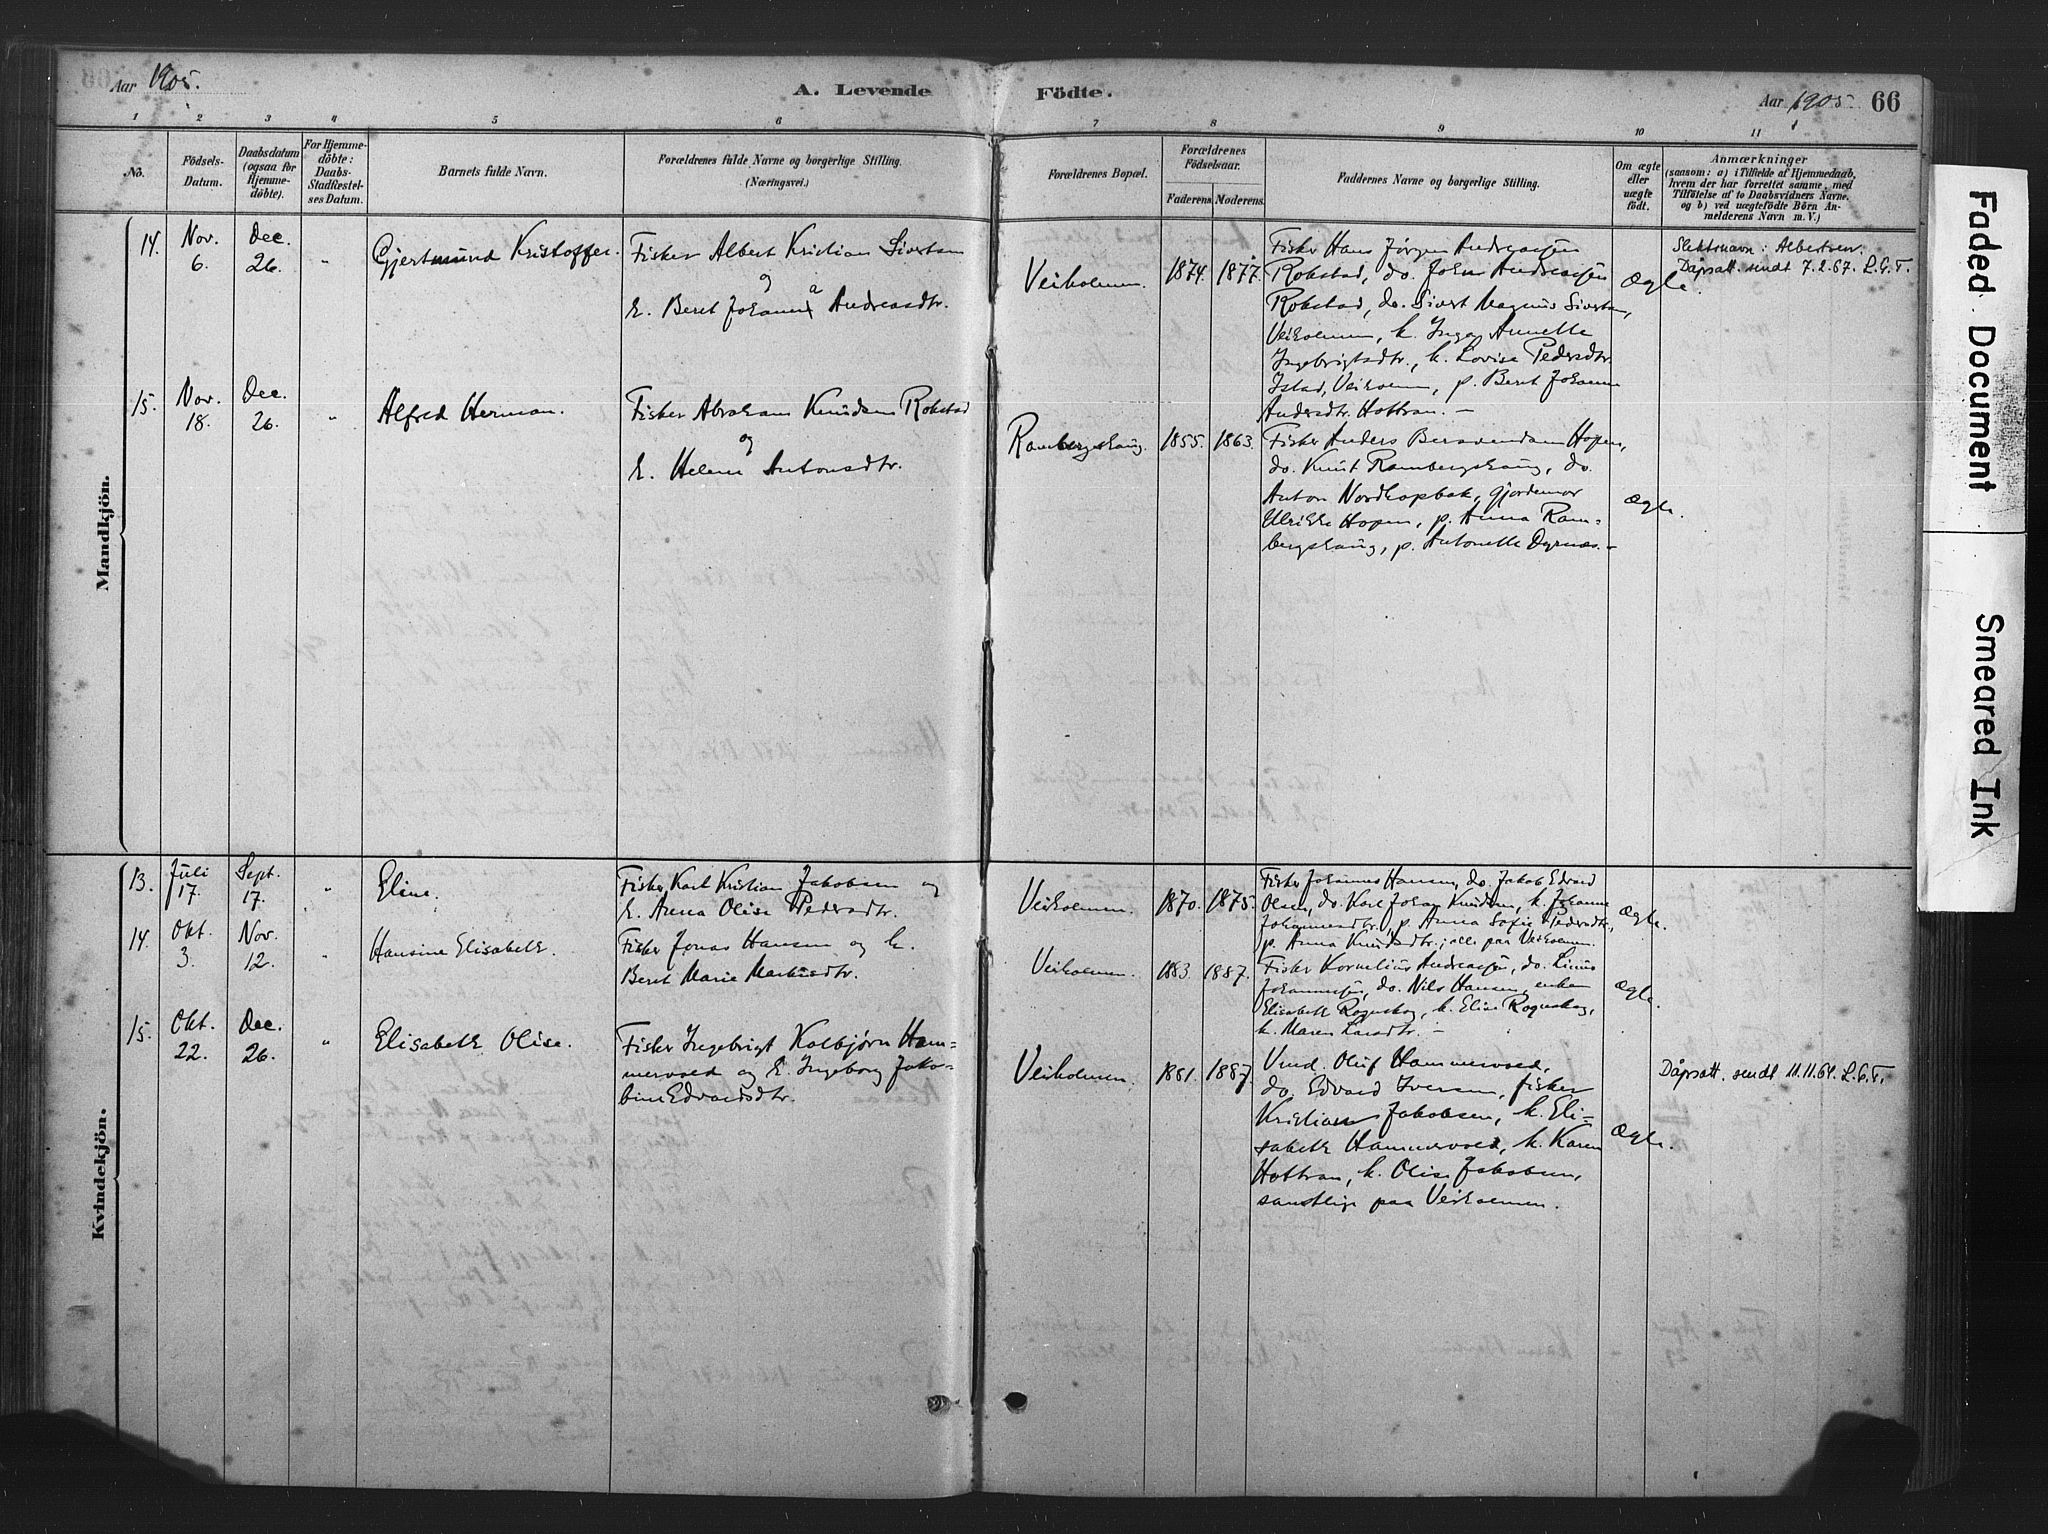 Aar 1905.
A. Levende Födte.
Aar 1905. 66
1 2 3 4 5 6 7 8 9 10 11
No.
Födsels-
Datum.
Daabsdatum
(ogsaa for
Hjemme-
döbte).
For Hjemme-
döbte:
Daabs-
Stadfæstel-
ses Datum.
Barnets fulde Navn.
Forældrenes fulde Navne og borgerlige Stilling.
(Næringsvei.)
Forældrenes Bopæl.
Forældrenes
Födselsaar.
Faderens. Moderens.
Faddernes Navne og borgerlige Stilling.
Om ægte
eller
uægte
födt.
Anmærkninger
(saasom: a) i Tilfælde af Hjemmedaab,
hvem der har forrettet samme, med
Tilföielse af to Daabsvidners Navne,
og b) ved uægtefödte Börn An-
melderens Navn m. V.)
Mandkjön.
14.
Nov.
6.
Dec.
26.
"
Gjertmund Kristoffer.
Fisker Albert Kristian Sivertsen
og
h. Beret Johanna Andreasdtr.
Veiholmen.
1874. 1877.
Fisker Hans Jørgen Andreassen
Rokstad, do. Johan Andreassen
Rokstad, do. Sivert Magnus Sivertsen,
Veiholmen, k. Inger Annette
Ingebrigtsdtr., k. Lovise Pedersdtr.
Istad, Veiholmen, p. Beret Johanna
Andersdtr. Hottran. —
Ægte.
Slektsnavn: Albertsen.
Dåpsatt. sendt 7.2.67. L.G.T.
15.
Nov.
18.
Dec.
26.
"
Alfred Herman.
Fisker Abraham Knudsen Rokstad
og
h. Helene Antonsdtr.
Rambergshaug.
1855. 1863.
Fisker Anders Hopen,
do. Knut Rambergshaug, do.
Anton Nordhopbak, gjordemor
Ulrikke Hopen, p. Anna Ram-
bergshaug, p. Antonette Dyrnæs. —
Ægte.
Kvindekjön.
13.
Juli
17.
Sept.
17.
"
Eline.
Fisker Karl Kristian Jakobsen og
h. Anna Olise Pedersdtr.
Veiholmen.
1870. 1875.
Fisker Johannes Hansen, do. Jakob Edvard
Olsen, do. Karl Johan Knudsen, k. Johanne
Johannesdtr., p. Anna Sofie Pedersdtr.,
p. Anna Knudsdtr.; alle paa Veiholmen.
Ægte.
14.
Okt.
3.
Nov.
12.
"
Hansine Elisabeth.
Fisker Jonas Hansen og h.
Beret Marie Markusdtr.
Veiholmen.
1883. 1887.
Fisker Kornelius Andreassen, do. Linus
Johannessen, do. Nils Hansen, enken
Elisabeth Rognskog, k. Elise Rognskog,
k. Maren Larsdtr. —
Ægte.
15.
Okt.
22.
Dec.
26.
"
Elisabeth Olise.
Fisker Ingebrigt Kolbjørn Ham-
mervold og h. Ingeborg Jako-
bine Edvardsdtr.
Veiholmen.
1881. 1887.
Vmd. Oluf Hammervold,
do. Edvard Iversen, fisker
Kristian Jakobsen, k. Eli-
sabeth Hammervold, k. Karen
Hottran, k. Olise Jakobsen,
samtlige paa Veiholmen.
Ægte.
Dåpsatt. sendt 11.11.69. L.G.T.
Faded Document
Smeared Ink